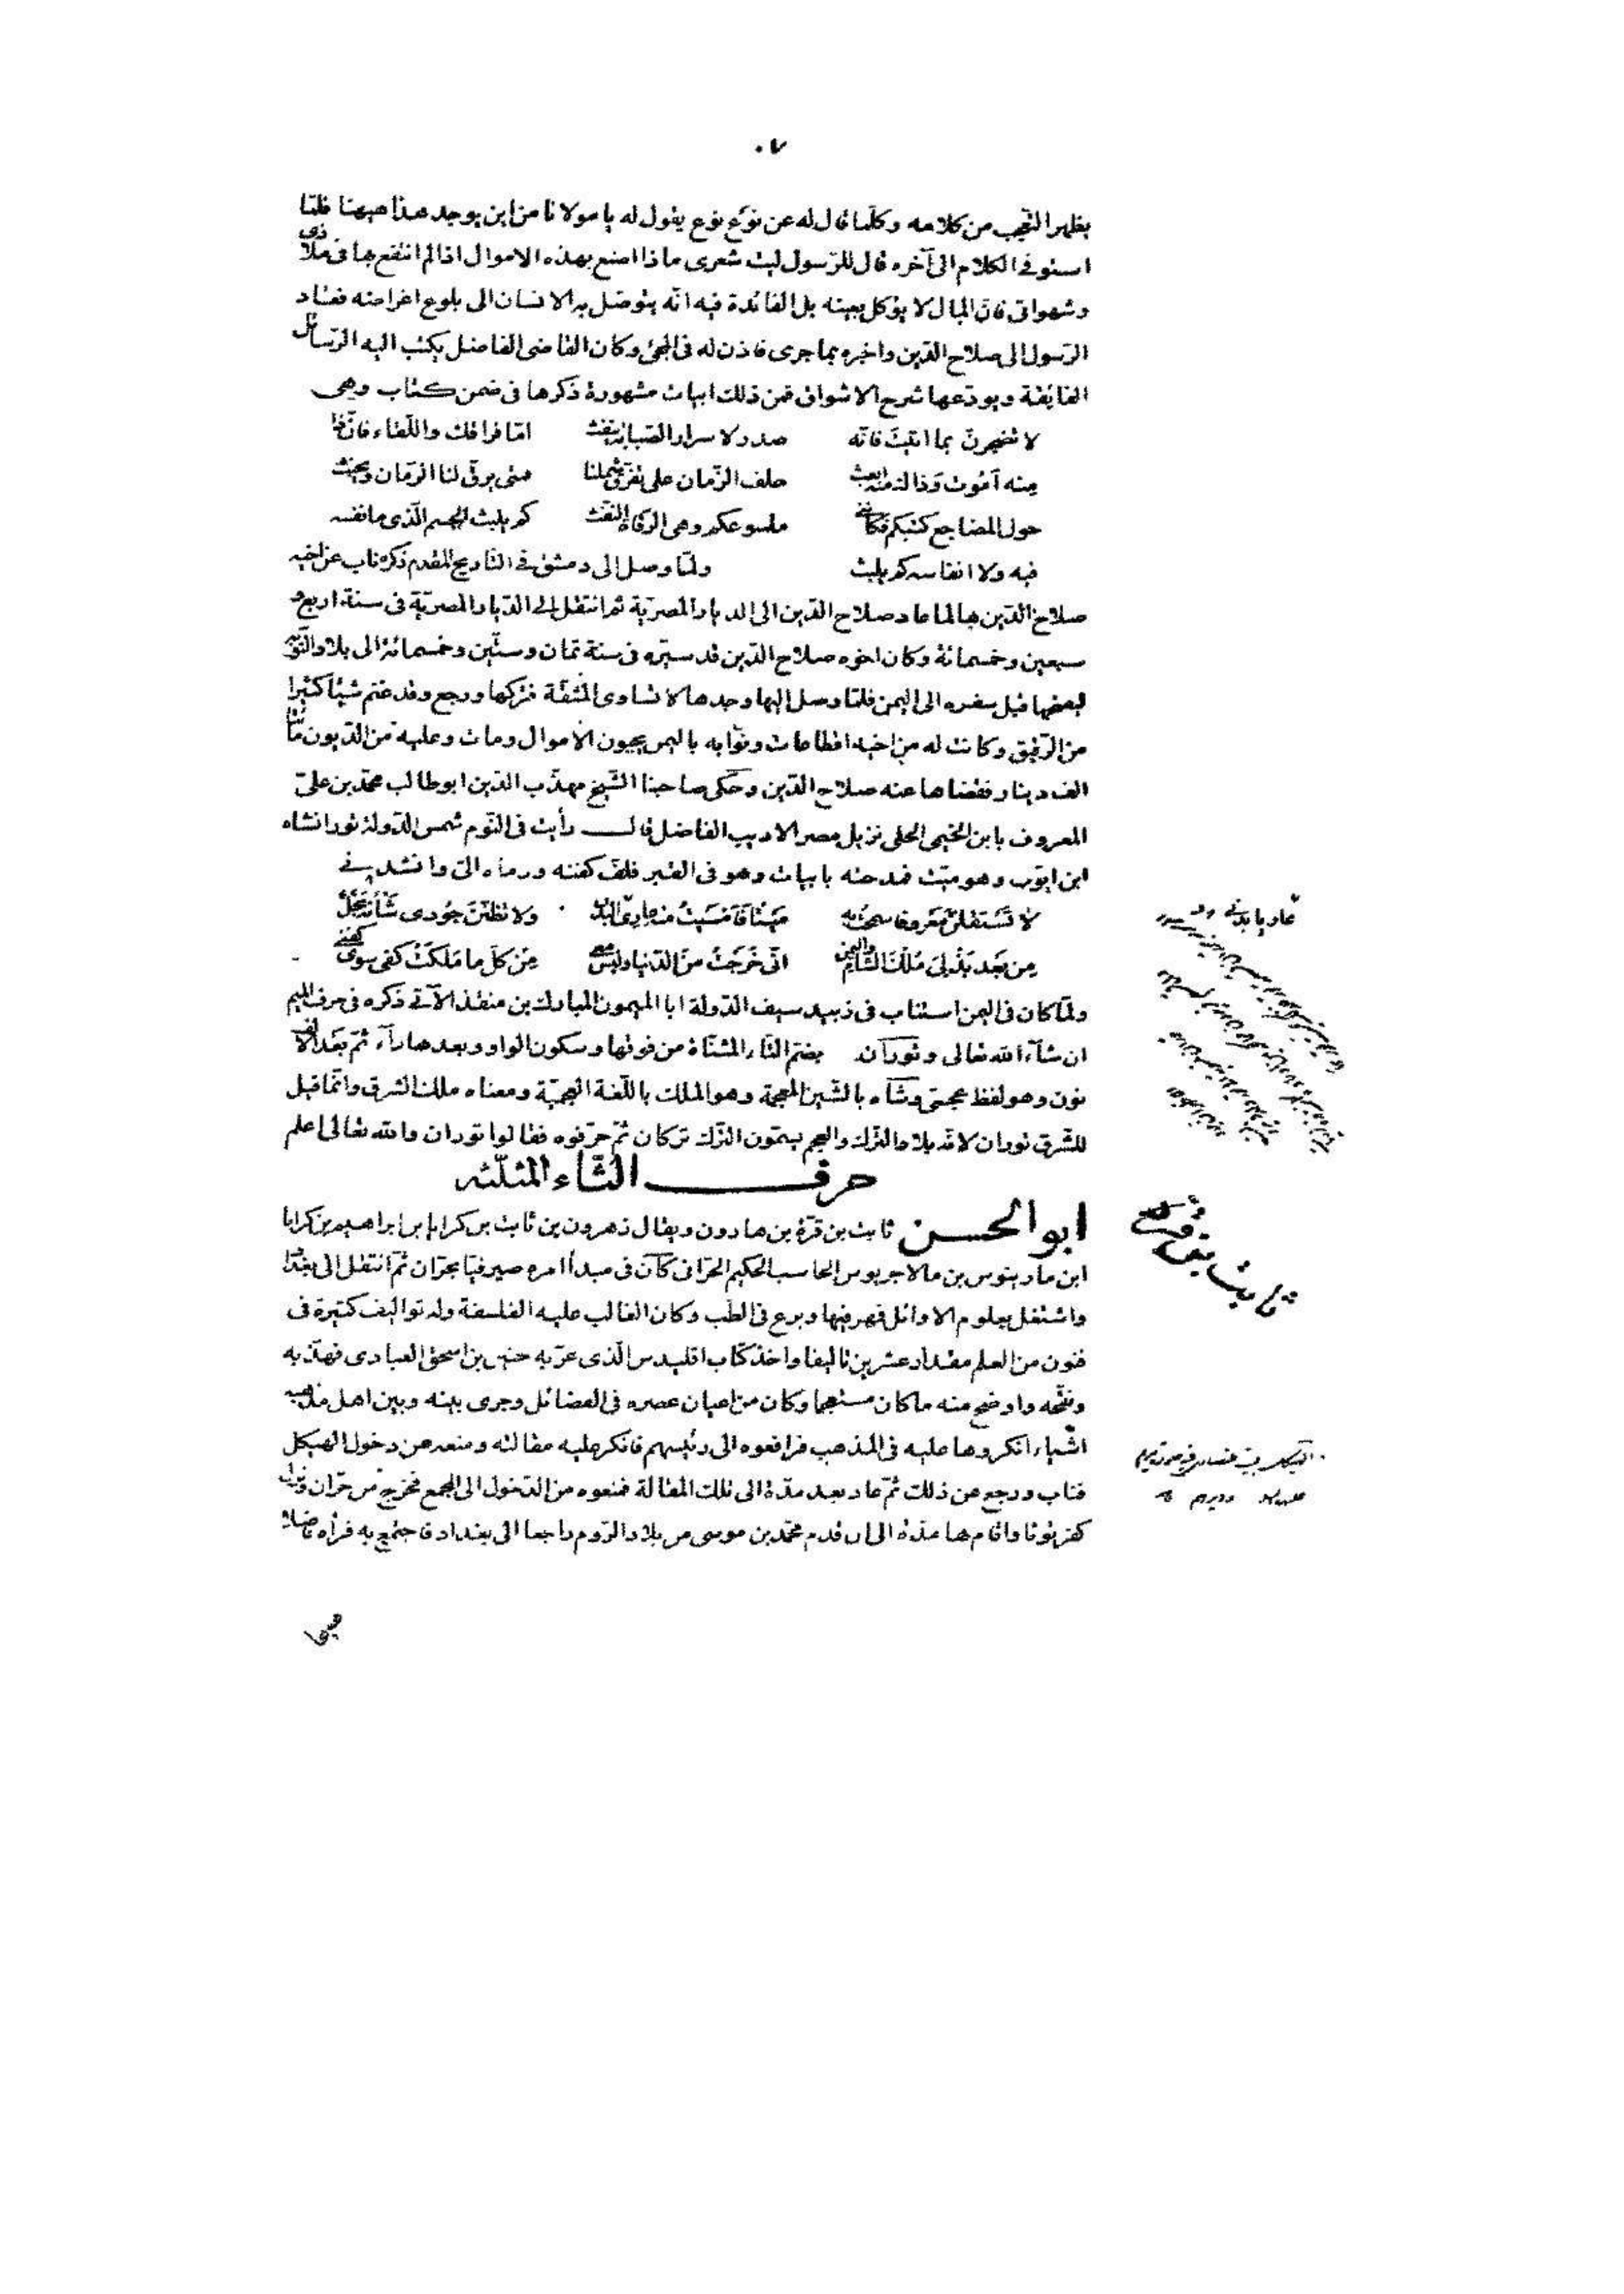 ٠٧
يظهر التعجب من كلامه وكلما قال له عن نوع نوع يقول له يا مولانا من اين يوجد هذا هيهنا فلتا
استوفى الكلام الى آخره قال للرسول ليت شعرى ماذا اصنع بهذه الاموال اذا لم انتفع بها فى ملاذى
وشهواتى فان المال لا يؤكل بعينه بل الفائدة فيه انه يتوصل به الانسان الى بلوغ اغراضه فعاد
الرسول الى صلاح الدين واخبره بما جرى فاذن له فى المجئ وكان القاضى الفاضل يكتب اليه الرسائل
الفايقة ويودعها شرح الاشواق فمن ذلك ابيات مشهورة ذكرها فى ضمن كتاب وهى
لا تضجرن بما اتيت فانه صدر لاسرار الصبابة ينفث اما فراقك واللقاء فان ذا
منه اموت وذاك منه ابعث حلف الزمان على تفرق شملنا متى يرق لنا الزمان ويحنث
حول المضاجع كتبكم فكاننى ملسوعكم وهى الرقاة النفث كم يلبث الجسم الذى ما نفسه
فيه ولا انفاسه كم يلبث ولما وصل الى دمشق فى التاريخ المقدم ذكره ناب عن اخيه
صلاح الدين بها لما عاد صلاح الدين الى الديار المصرية ثم انتقل الى الديار المصرية فى سنة اربع و
سبعين وخمسمائة وكان اخوه صلاح الدين قد سيره فى سنة ثمان وستين وخمسمائة الى بلاد النوبة
ليفتحها قبل سفره الى اليمن فلما وصل اليها وجدها لا تساوى المشقة فتركها ورجع وقد غنم شيئا كثيرا
من الرقيق وكانت له من اخيه اقطاعات ونوابه باليمن يجبون الاموال ومات وعليه من الديون مأتا
الف دينار فقضاها عنه صلاح الدين وحكى صاحبنا الشيخ مهذب الدين ابوطالب محمد بن على
المعروف بابن الخيمى الحلى نزيل مصر الاديب الفاضل قال رأيت فى النوم شمس الدولة تورانشاه
ابن ايوب وهو ميت فمدحته بابيات وهو فى القبر فلف كفنه ورماه الى وانشدنى
لا تستقلن معروفا سمحت به ميتا فامسيت منه عارى البدن ولا تظنن جودى شأنه بخل
من بعد بذلى ملك الشام واليمن انى خرجت من الدنيا وليس معى من كل ما ملكت كفى سوى كفنى
ولما كان فى اليمن استناب فى زبيد سيف الدولة ابا الميمون المبارك بن منقذ الآتى ذكره فى حرف الميم
ان شآء الله تعالى وتوران بضم التاء المثناة من فوقها وسكون الواو وبعدها رآء ثم بعد الالف
نون وهو لفظ عجمى وشاه بالشين المعجمة وهو الملك باللغة العجمية ومعناه ملك الشرق وانما قيل
للشرق توران لانه بلاد الترك والعجم يسمون الترك تركان ثم حرفوه فقالوا توران والله تعالى اعلم
حرف الثاء المثلثه
ابو الحسن ثابت بن قرة بن هارون ويقال زهرون بن ثابت بن كرايا بن ابراهيم بن كرايا
ابن مارينوس بن مالاجريوس الحاسب الحكيم الحرانى كان فى مبدأ امره صيرفيا بحران ثم انتقل الى بغداد
واشتغل بعلوم الاوائل فمهر فيها وبرع فى الطب وكان الغالب عليه الفلسفة وله تواليف كثيرة فى
فنون من العلم مقدار عشرين تاليفا واخذ كتاب اقليدس الذى عربه حنين بن اسحق العبادى فهذبه
ونقحه واوضح منه ما كان مستعجما وكان من اعيان عصره فى الفضائل وجرى بينه وبين اهل مذهبه
اشياء انكروها عليه فى المذهب فرافعوه الى رئيسهم فانكر عليه مقالته ومنعه من دخول الهيكل
فتاب ورجع عن ذلك ثم عاد بعد مدة الى تلك المقالة فمنعوه من الدخول الى المجمع فخرج من حران ونزل
كفرتوثا واقام بها مدة الى ان قدم محمد بن موسى من بلاد الروم راجعا الى بغداد فاجتمع به فرأه فاضلا
ثابت بن قره